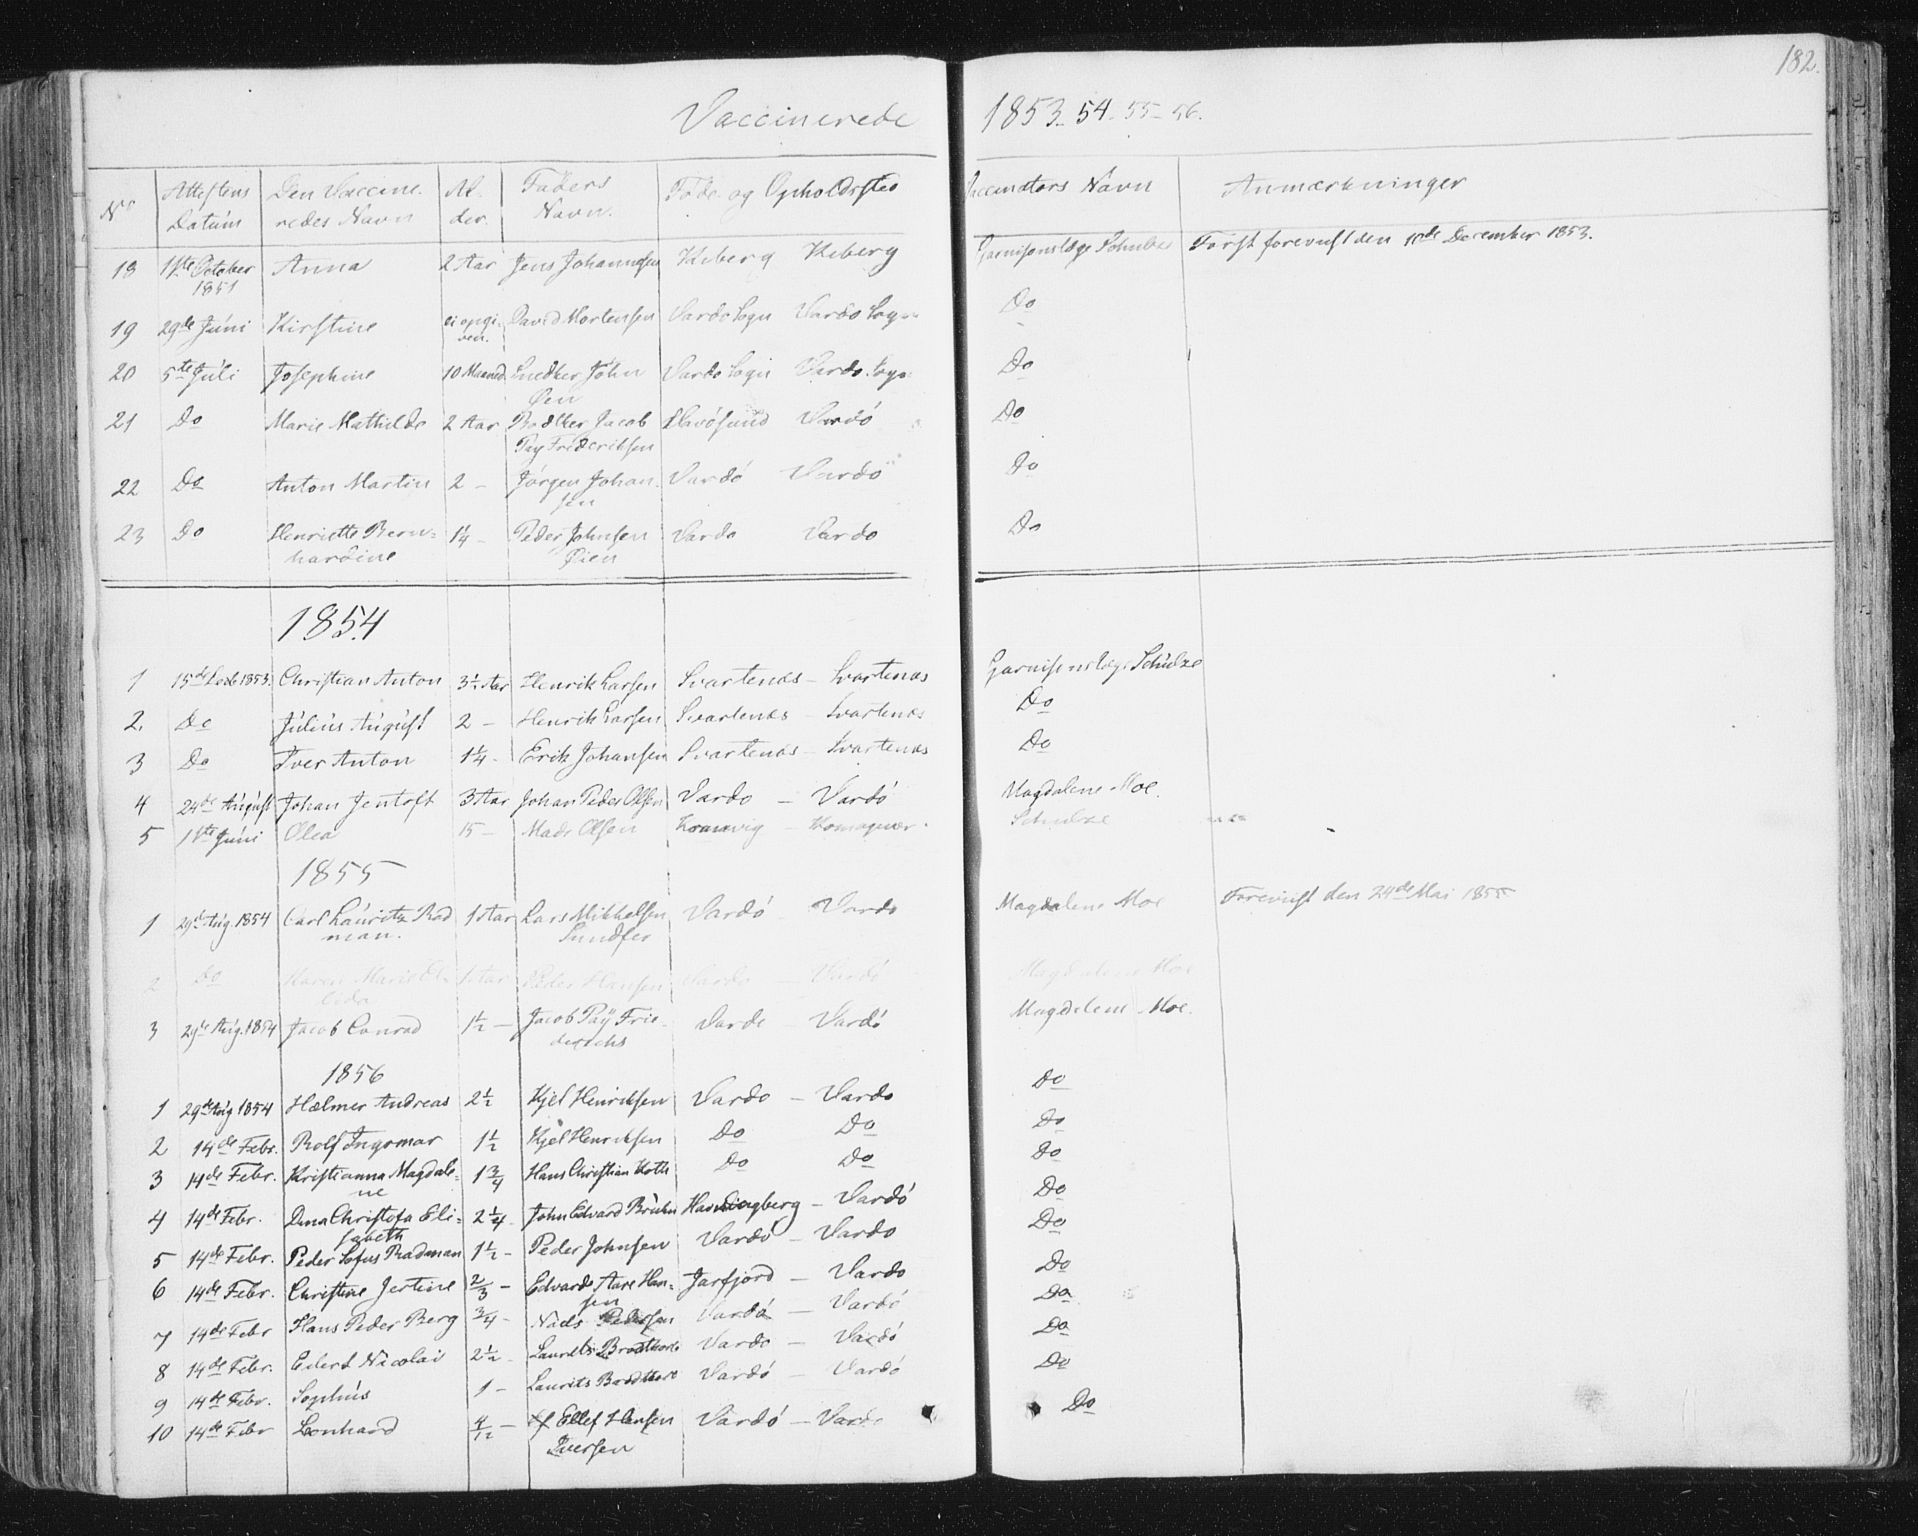 182.
Vaccinerede 1853-54-55-56.
No Attestens Datum Den Vaccineredes Navn Alder Faders Navn. Føde- og Opholdssted Vaccinators Navn Anmærkninger
18 11te October 1851 Anna 2 Aar Jens Johannesen Kiberg Kiberg Garnisonslæge Schulze Først forevist den 10de December 1853.
19 29de Juni Kirstine ei opgiven. David Mortensen Vardø Sogn Vardø Sogn Do
20 5te Juli Josephine 10 Maaned. Snedker John Øen Vardø Sogn Vardø Sogn Do
21 Do Marie Mathilde 2 Aar Bødker Jacob Pay Frideriksen Havøsund Vardö Do
22 Do Anton Martin 2 - Jörgen Johansen Vardö Vardö Do
23 Do Henriette Bernhardine 1¼ - Peder Johnsen Øien Vardø Vardø Do
1854
1 15de Decb 1853. Christian Anton 3½ Aar Henrik Larsen Svartenæs - Svartenæs Garnisonslæge Schulze
2. Do Julius August 2 - Henrik Larsen Svartenæs - Svartenæs Do
3 Do Iver Anton 1¼ - Erik Johansen Svartenæs - Svartenæs Do
4 24de August Johan Jentoft 3 Aar Johan Peder Olsen Vardø - Vardö Magdalene Moe.
5 1ste Juni Olea 15 - Mads Olsen Kramvig - Komagvær. Schulze
1855
1 29de Aug. 1854 Carl Lauritz Radman. 1 Aar Lars Mikkelsen Sundfær Vardö Vardø Magdalene Moe Forevist den 24de Mai 1855
2 Do Karen Marie 1 Aar Peder Hansen Vardø - Vardö Magdalene Moe
3 29de Aug. 1854 Jacob Conrad 1½ - Jacob Pay Friederichs Vardø Vardö Magdalene Moe.
1856
1 29de Aug 1854 Hælmer Andreas 2½ Kjel Henriksen Vardø - Vardø Do
2 14de Febr. Rolf Ingomar 1½ Kjel Henriksen Do Do Do
3 14de Febr. Kristianna Magdalene 1¾ Hans Christian Koth Do Do Do
4 14de Febr. Dina Christofa Elisabeth 2¼ - John Edvard Bruhn Hamingberg - Vardö Do
5 14de Febr. Peder Sofus Radman 1½ - Peder Johnsen Vardö - Vardø Do
6 14de Febr. Christine Jertine ⅔ - Edvard Aare Hansen Jarfjord - Vardø Do
7 14de Febr Hans Peder Berg ¾ - Niels Pedersen Vardö - Vardö Do
8 14de Febr. Edert Nicolai 2½ - Laurits Brodtkorb Vardø - Vardö Do
9 14de Febr. Sophus 1 - Laurits Brodtkorb Vardö - Vardö Do
10 14de Febr Leonhard 4/12 - Ellef Hansen Iversen Vardö - Vardø Do